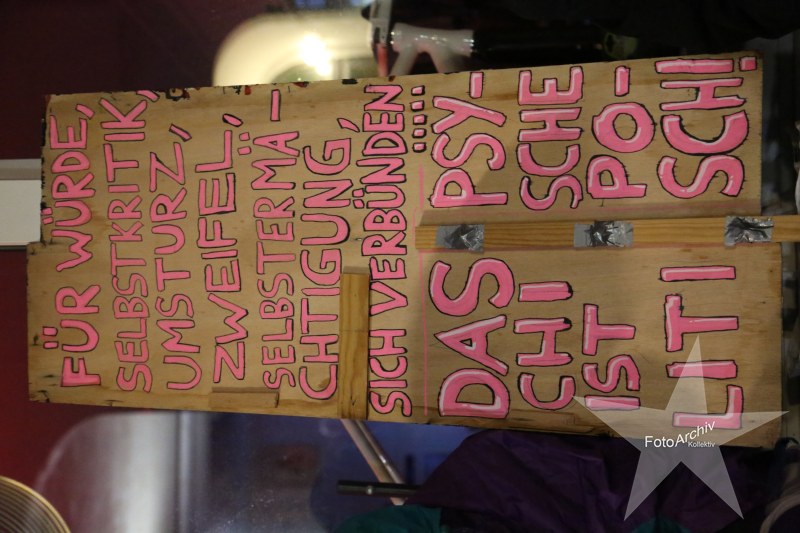 FÜR WÜRDE,
SELBSTKRITIK,
UMSTURZ,
ZWEIFEL,
SELBSTERMÄ-
CHTIGUNG,
SICH VERBÜNDEN.....
DAS PSY-
CHISCHE
IST PO-
LITISCH!
FotoArchiv
Kollektiv